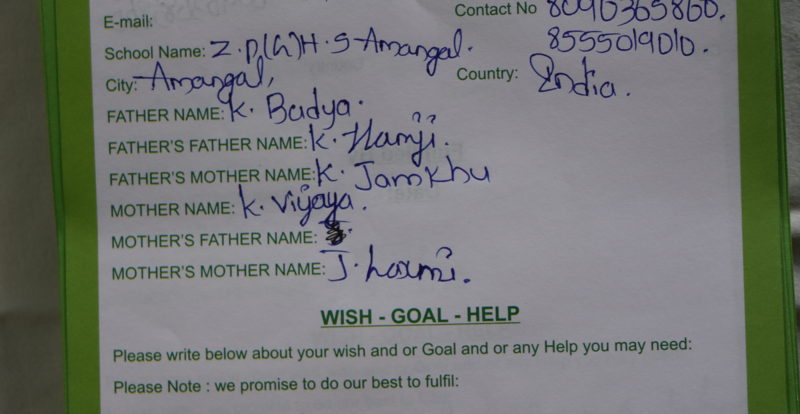 E-mail:
Contact No 8096365860.
School Name: Z.P(G)H.S-Amangal. 8555019010.
City: Amangal, Country: India.
FATHER NAME: K. Badya.
FATHER'S FATHER NAME: K. Hamji.
FATHER'S MOTHER NAME: K. Jamkhu
MOTHER NAME: K. Vijaya.
MOTHER'S FATHER NAME:
MOTHER'S MOTHER NAME: J. Laxmi.
WISH - GOAL - HELP
Please write below about your wish and or Goal and or any Help you may need:
Please Note : we promise to do our best to fulfil: